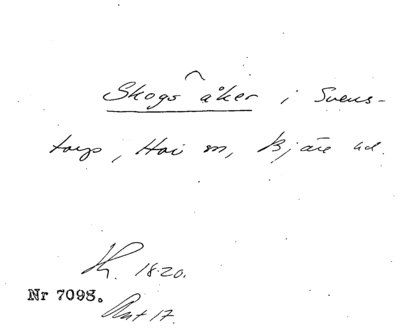 Skogs åker i Svens-
torp, Hov sn, Bjäre hd.
K. 1820.
Nr 7098.
Akt 17.